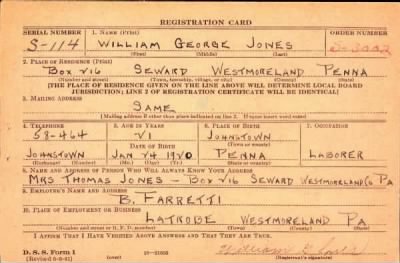 REGISTRATION CARD
SERIAL NUMBER 1. NAME (Print) ORDER NUMBER
S-114 WILLIAM GEORGE JONES
(First) (Middle) (Last)
2. PLACE OF RESIDENCE (Print)
BOX 216 SEWARD WESTMORELAND PENNA
(Number and street) (Town, township, village, or city) (County) (State)
[THE PLACE OF RESIDENCE GIVEN ON THE LINE ABOVE WILL DETERMINE LOCAL BOARD
JURISDICTION; LINE 2 OF REGISTRATION CERTIFICATE WILL BE IDENTICAL]
3. MAILING ADDRESS
SAME
[Mailing address if other than place indicated on line 2. If same insert word same]
4. TELEPHONE 5. AGE IN YEARS 6. PLACE OF BIRTH 7. OCCUPATION
58-464 21 JOHNSTOWN
JOHNSTOWN JAN 24 1920 PENNA LABORER
(Exchange) (Number) (Mo.) (Day) (Yr.) (State or country)
8. NAME AND ADDRESS OF PERSON WHO WILL ALWAYS KNOW YOUR ADDRESS
MRS THOMAS JONES - BOX 216 SEWARD WESTMORELAND CO PA
9. EMPLOYER'S NAME AND ADDRESS
B. FARRETTI
10. PLACE OF EMPLOYMENT OR BUSINESS
LATROBE WESTMORELAND PA
(Number and street or R. F. D. number) (Town) (County) (State)
I AFFIRM THAT I HAVE VERIFIED ABOVE ANSWERS AND THAT THEY ARE TRUE.
D. S. S. Form 1
(over) William G. Jones
(Registrant's signature)